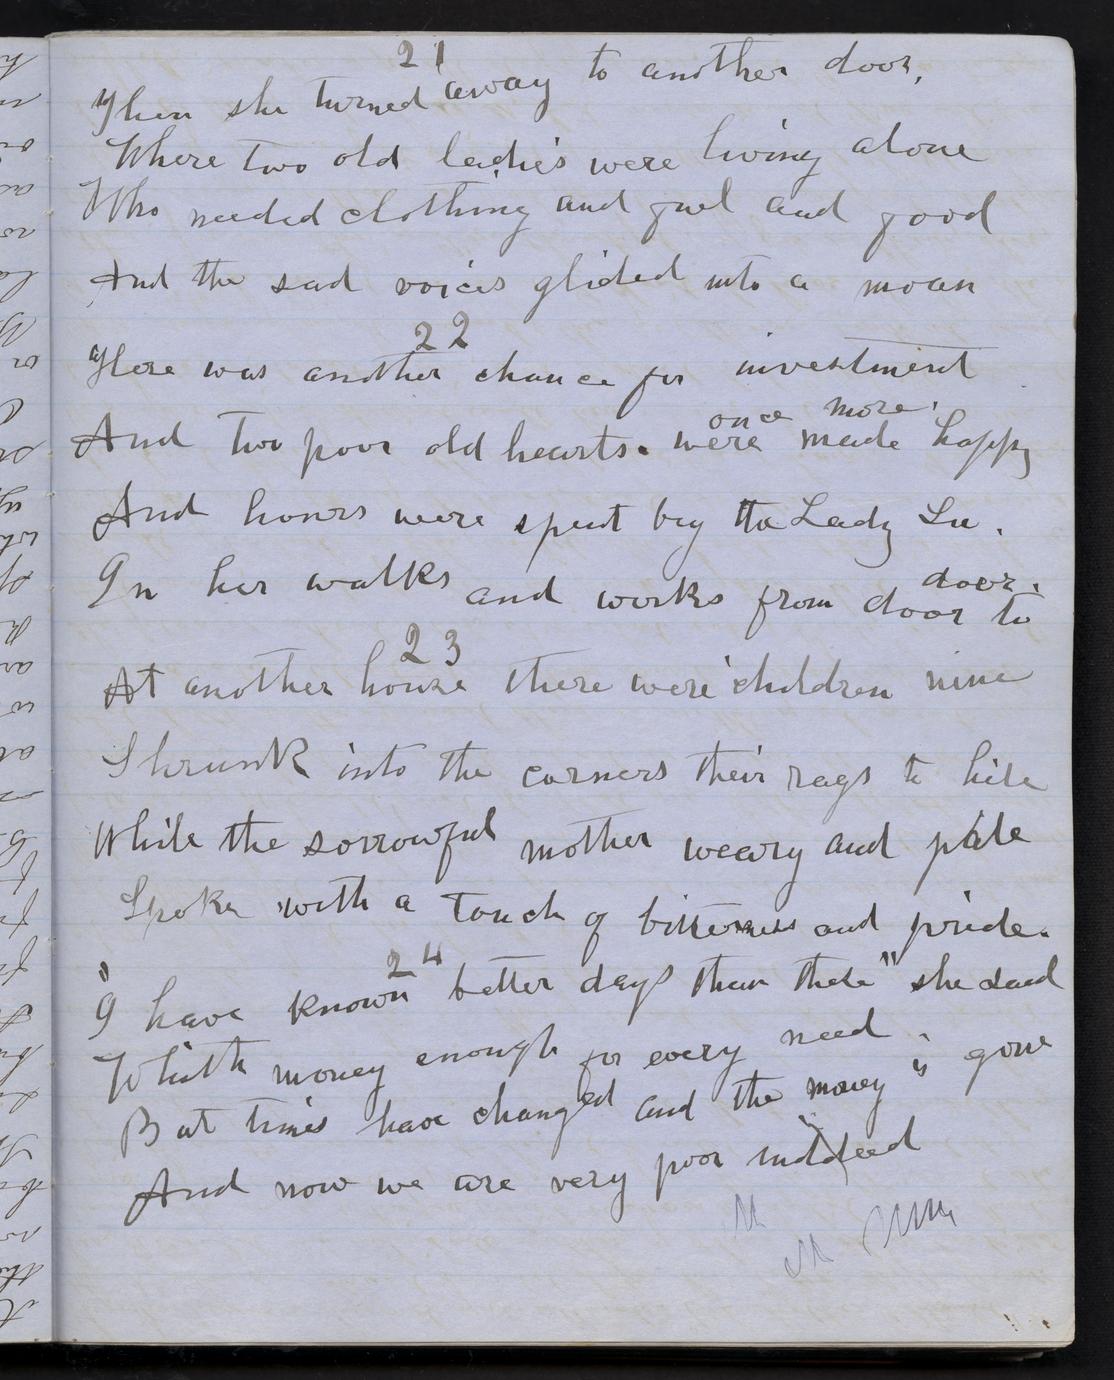 21
Then she turned away to another door,
Where two old ladies were living alone
Who needed clothing and fuel and good
And the sad voices glided into a moan
22
Here was another chance for investment
And two poor old hearts. were made happy once more.
And hours were spent by the Lady Lu.
In her walks and works from door to door.
23
At another house there were children nine
Shrunk into the corners their rags to hide
While the sorrowful mother weary and pale
Spoke with a touch of bitterness and pride.
24
"I have known better days than these" she said
With money enough for every need
But times have changed and the money is gone
And now we are very poor indeed